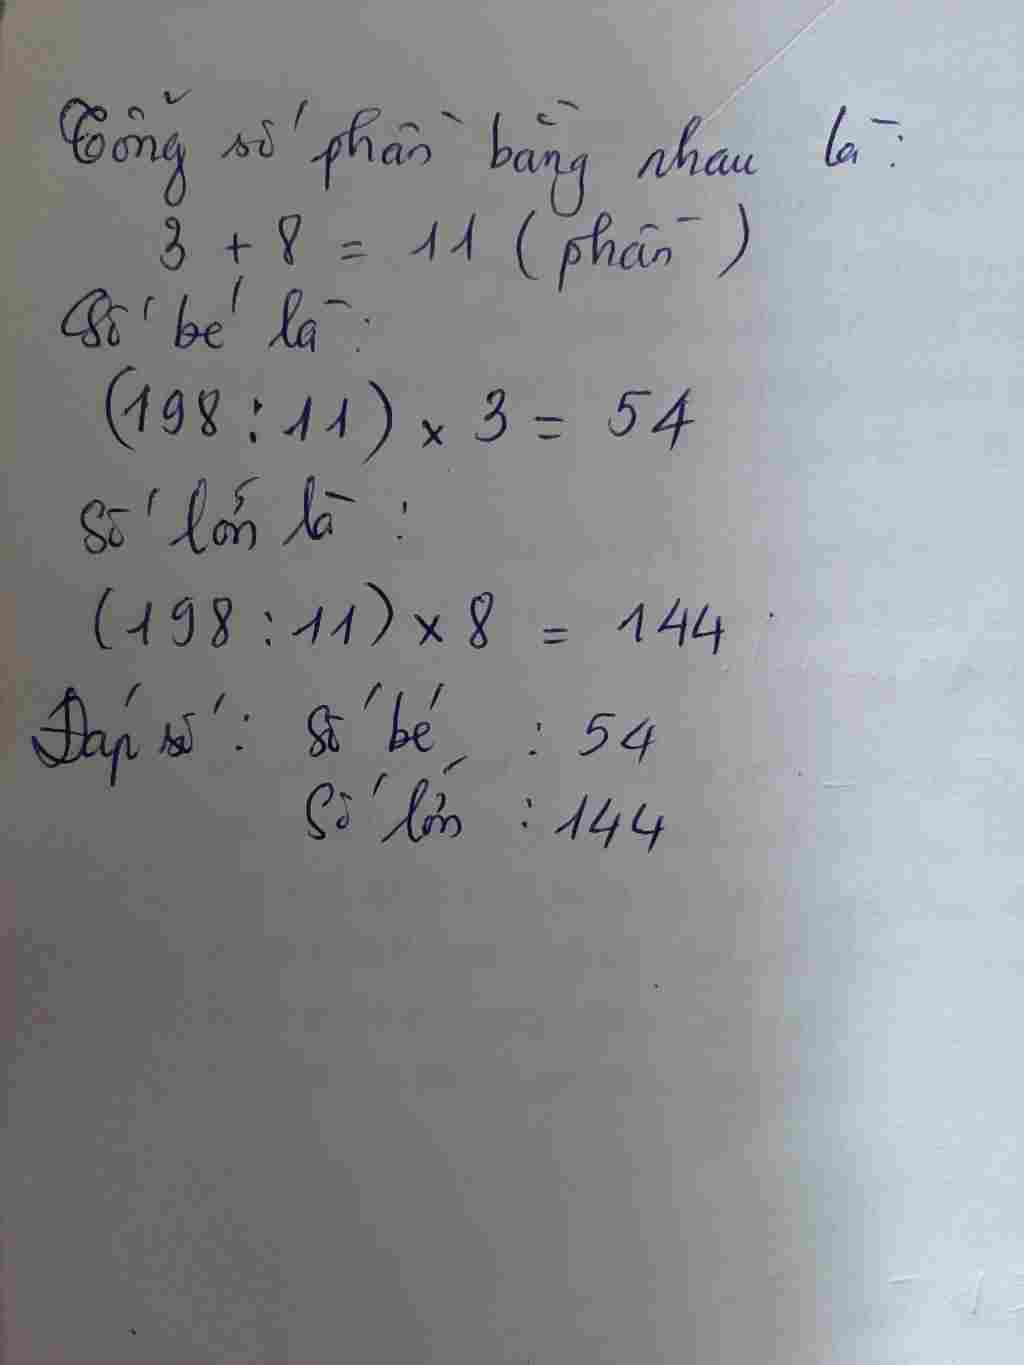 Tổng số phần bằng nhau là:
3 + 8 = 11 (phần)
Số bé là:
(198 : 11) x 3 = 54
Số lớn là :
(198 : 11) x 8 = 144
Đáp số : Số bé : 54
Số lớn : 144